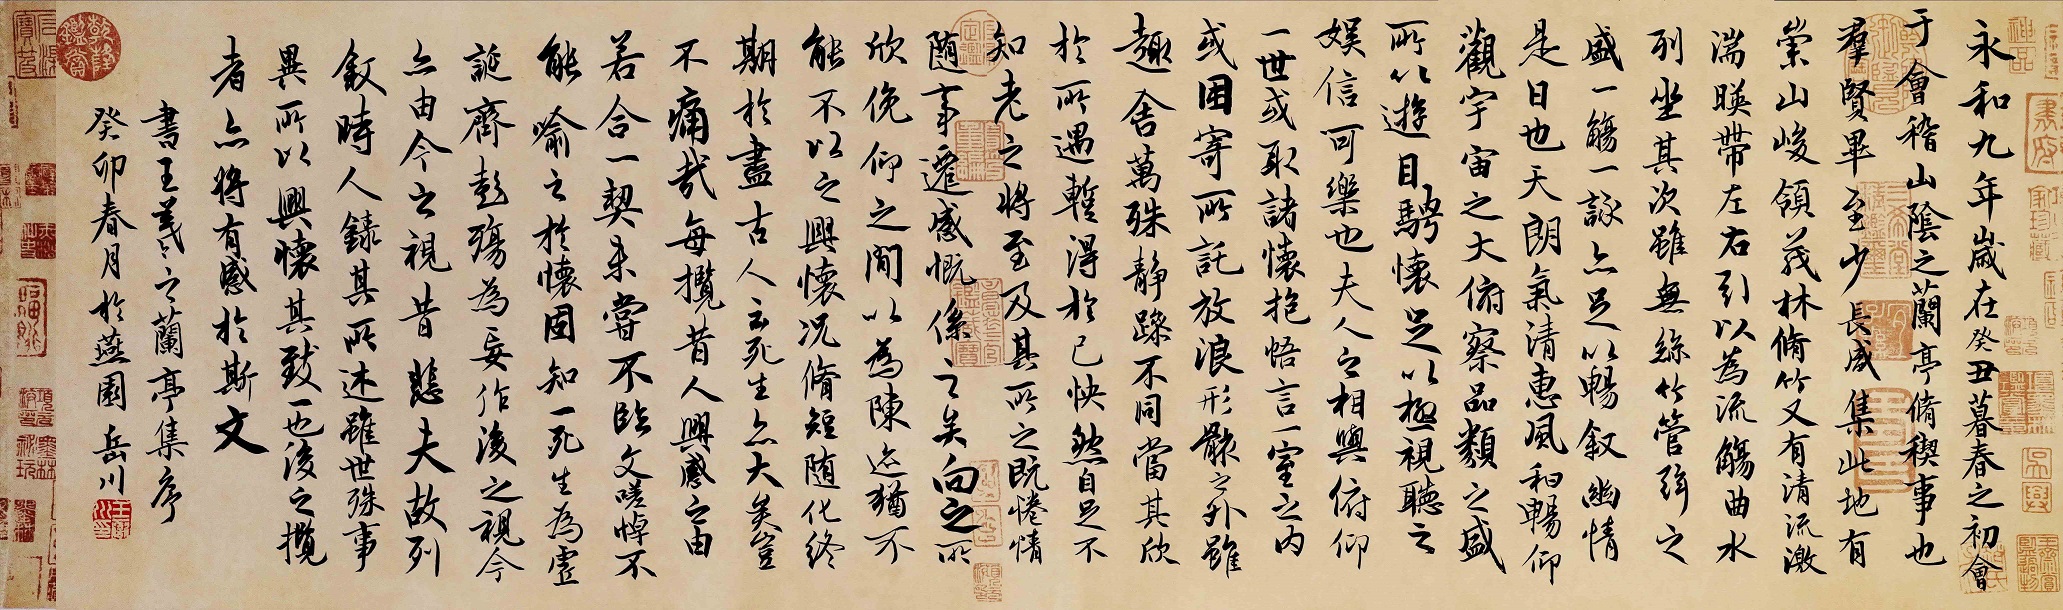 永和九年歲在癸丑暮春之初會
于會稽山陰之蘭亭脩稧事也
羣賢畢至少長咸集此地有
崇山峻領茂林脩竹又有清流激
湍暎帶左右引以為流觴曲水
列坐其次雖無絲竹管弦之
盛一觴一詠亦足以暢叙幽情
是日也天朗氣清惠風和暢仰
觀宇宙之大俯察品類之盛
所以遊目騁懷足以極視聽之
娛信可樂也夫人之相與俯仰
一世或取諸懷抱悟言一室之內
或因寄所託放浪形骸之外雖
趣舍萬殊靜躁不同當其欣
於所遇暫得於己怏然自足不
知老之將至及其所之既惓情
隨事遷感慨係之矣向之所
欣俛仰之閒以為陳迹猶不
能不以之興懷況脩短隨化終
期於盡古人云死生亦大矣豈
不痛哉每攬昔人興感之由
若合一契未嘗不臨文嗟悼不
能喻之於懷固知一死生為虛
誕齊彭殤為妄作後之視今
亦由今之視昔悲夫故列
叙時人錄其所述雖世殊事
異所以興懷其致一也後之攬
者亦將有感於斯文
書王羲之蘭亭集序
癸卯春月於燕園岳川